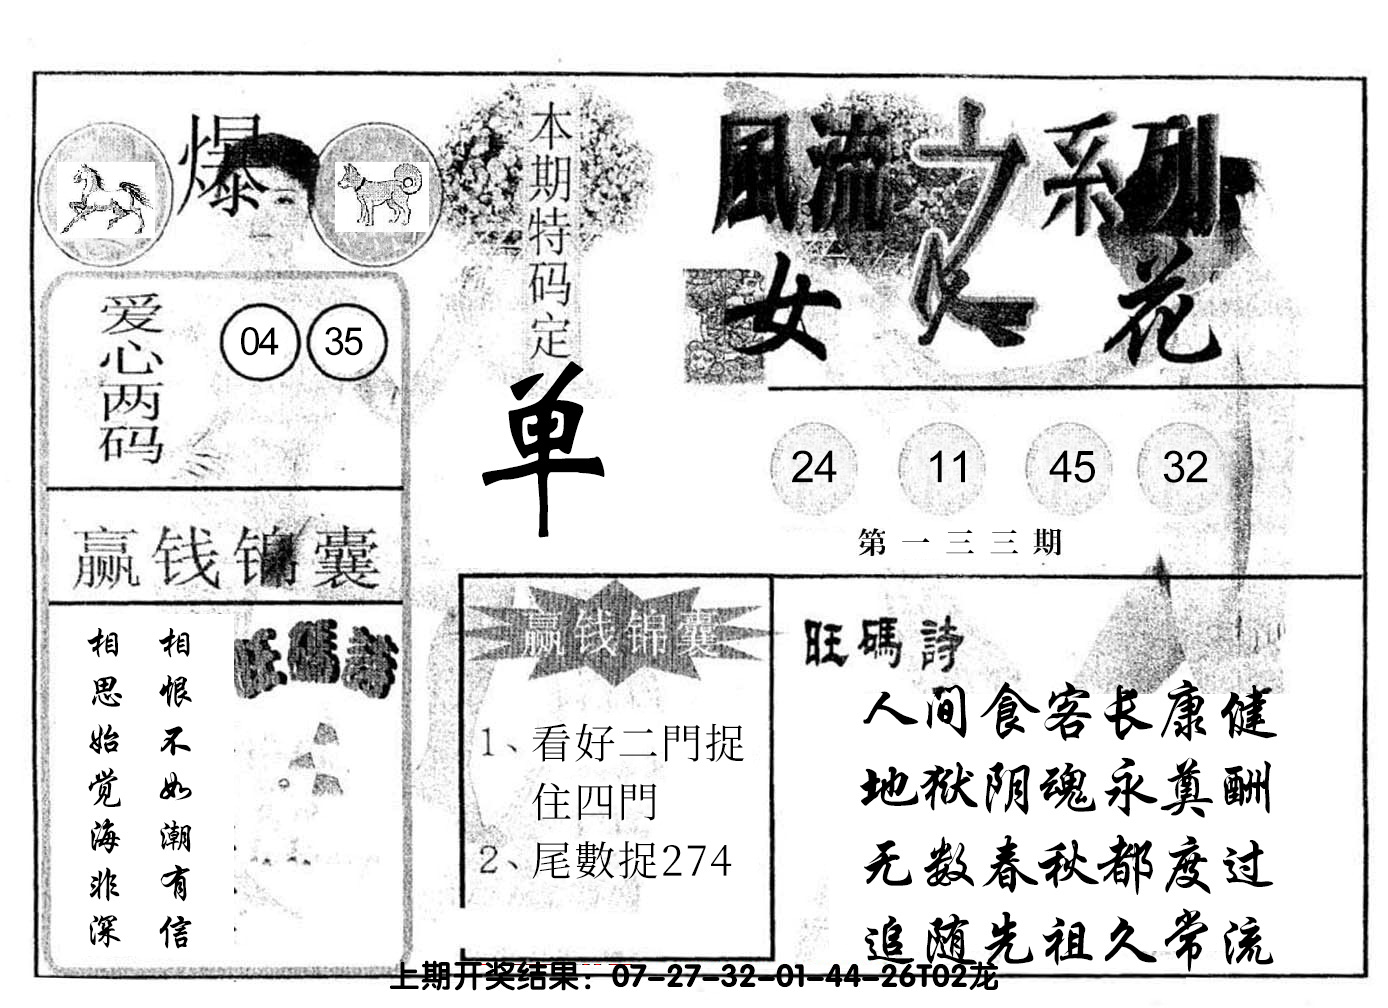 爆
爱心两码
04 35
赢钱锦囊
相恨不如潮有信
相思始觉海非深
旺碼詩
本期特码定
单
風流之系列
女人花
24 11 45 32
第一三三期
赢钱锦囊
1、看好二門捉
住四門
2、尾數捉274
旺碼詩
人间食客长康健
地狱阴魂永奠酬
无数春秋都度过
追随先祖久常流
上期开奖结果：07-27-32-01-44-26T02龙